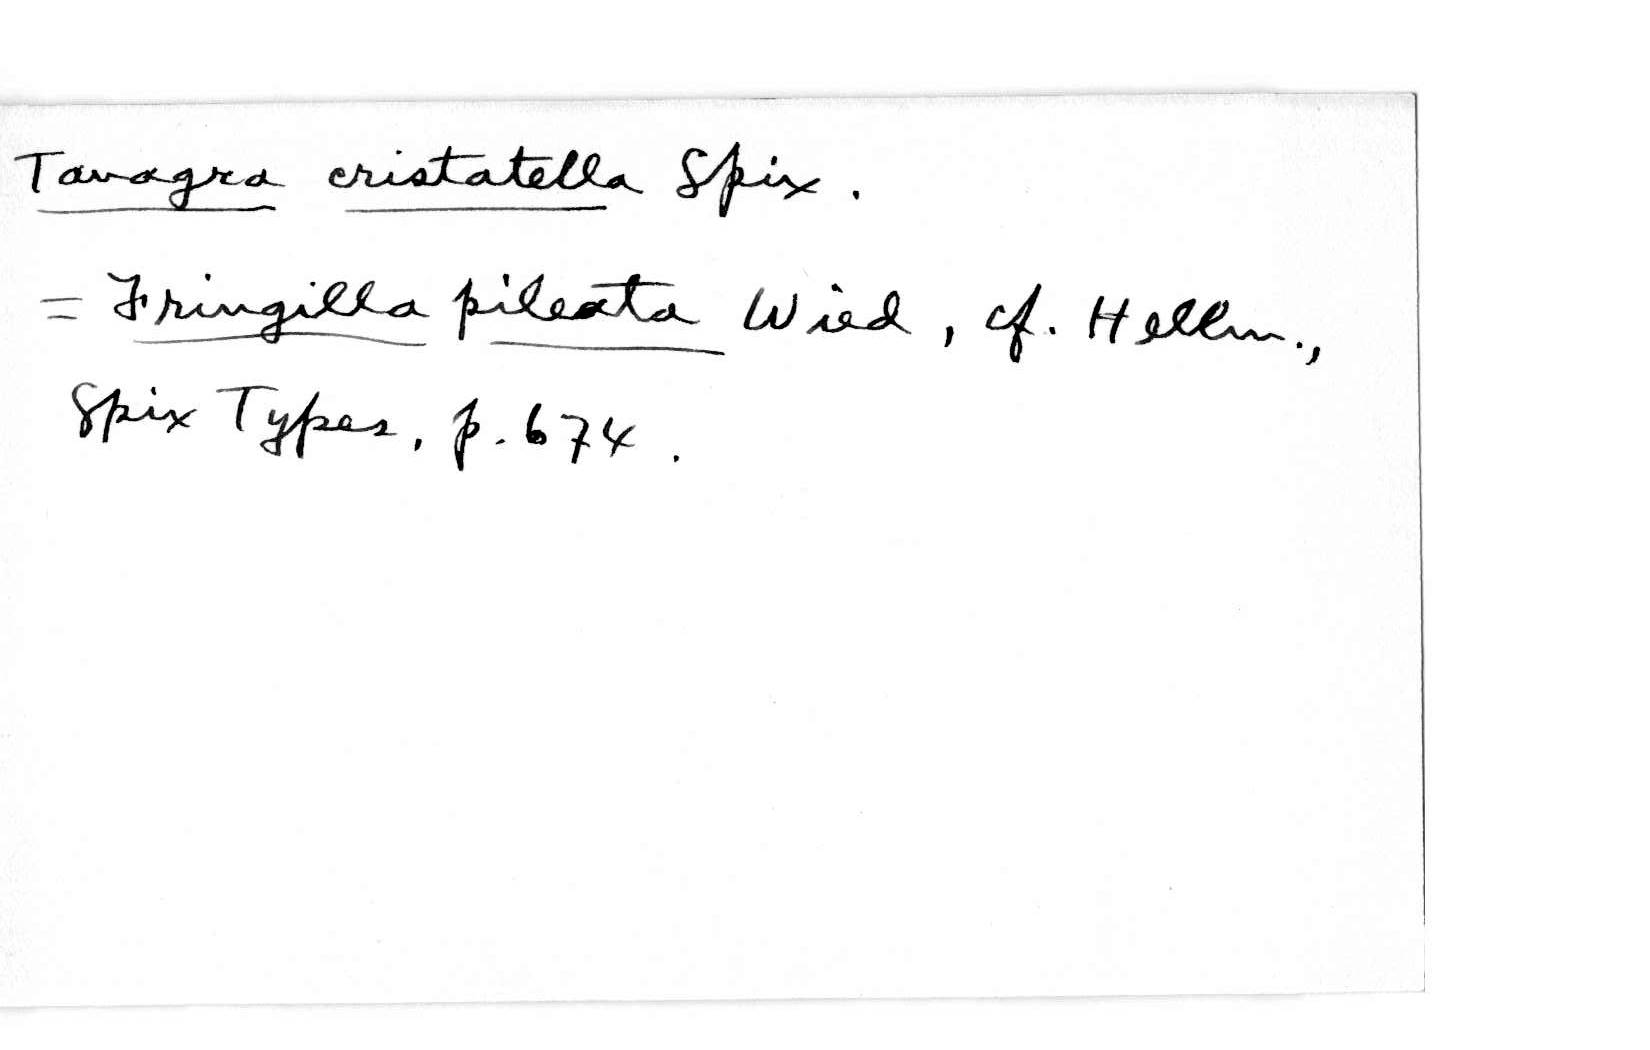 Tanagra cristatella Spix.
= Fringilla pileata Wied, cf. Hellm.,
Spix Types, p. 674.